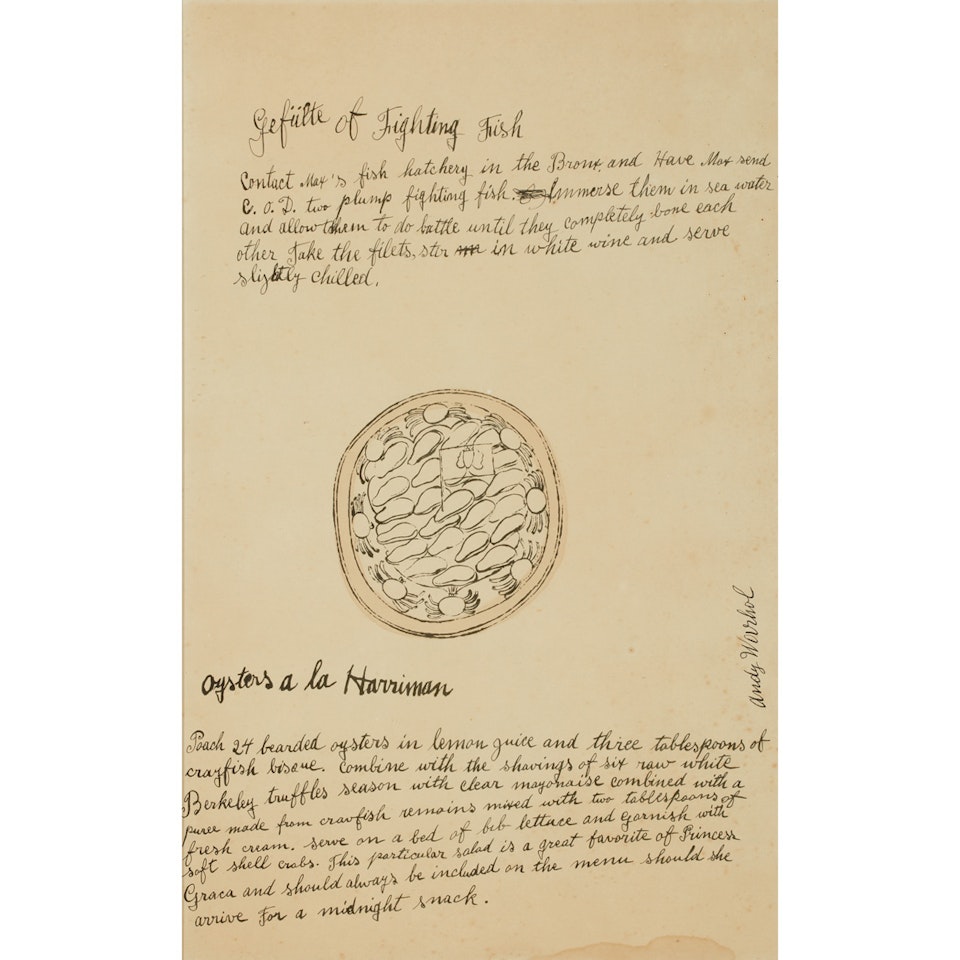 Gefülte of Fighting Fish
Contact Max's fish hatchery in the Bronx, and Have Max send
C. O. D. two plump fighting fish. Immerse them in sea water
and allow them to do battle until they completely bone each
other Take the filets, stir in white wine and serve
slightly chilled.
oysters a la Harriman
Andy Warhol
Poach 24 bearded oysters in lemon juice and three tablespoons of
crayfish bisque. Combine with the shavings of six raw white
Berkeley truffles season with clear mayonaise combined with a
puree made from crayfish remains mixed with two tablespoons of
fresh cream. serve on a bed of bib lettuce and garnish with
soft shell crabs. This particular salad is a great favorite of Princess
Graca and should always be included on the menu should she
arrive For a midnight snack.